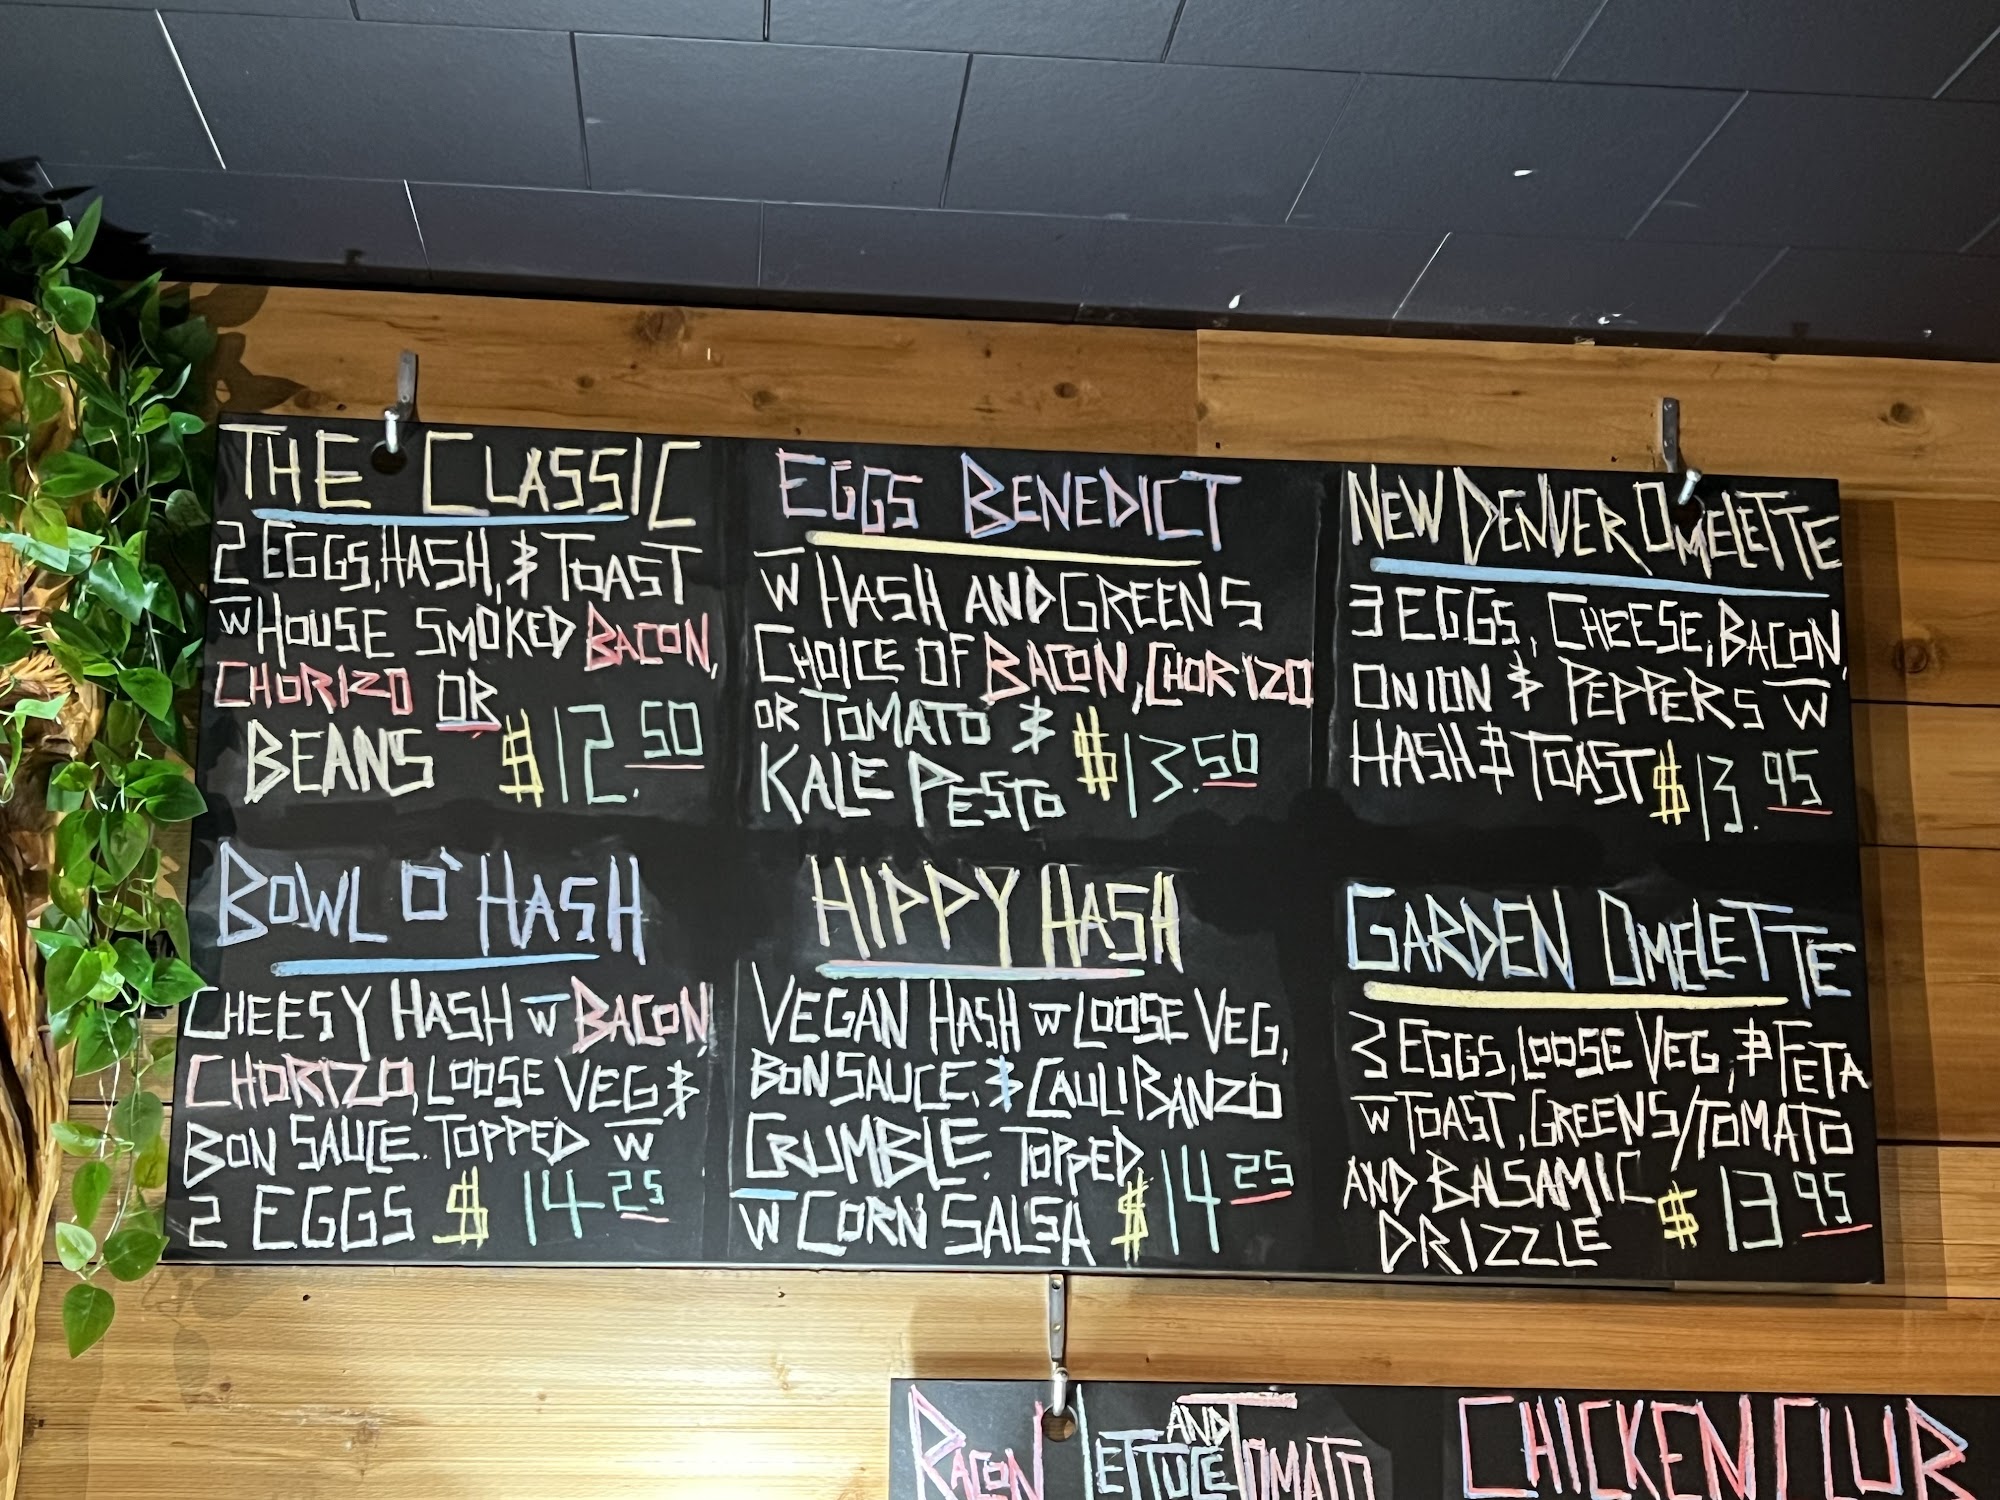 THE CLASSIC
2 EGGS, HASH, & TOAST
W HOUSE SMOKED BACON,
CHORIZO OR
BEANS $12.50
EGGS BENEDICT
W HASH AND GREENS
CHOICE OF BACON, CHORIZO
OR TOMATO &
KALE PESTO $13.50
NEW DENVER OMELETTE
3 EGGS, CHEESE, BACON,
ONION & PEPPERS W
HASH & TOAST $13.95
BOWL O' HASH
CHEESY HASH W BACON,
CHORIZO, LOOSE VEG &
BON SAUCE. TOPPED W
2 EGGS $14 25
HIPPY HASH
VEGAN HASH W LOOSE VEG,
BON SAUCE, & CAULIBANZO
CRUMBLE. TOPPED
W CORN SALSA $14 25
GARDEN OMELETTE
3 EGGS, LOOSE VEG, & FETA
W TOAST, GREENS/TOMATO
AND BALSAMIC
DRIZZLE $13 95
BACON LETTUCE AND TOMATO
CHICKEN CLUB